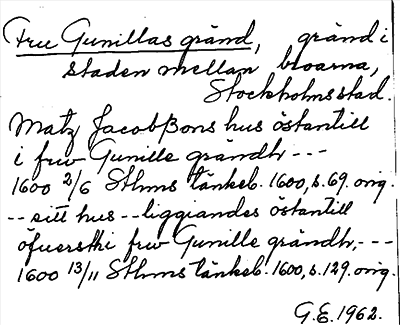 Fru Gunillas gränd, gränd i
staden mellan broarna,
Stockholms stad.
Matz Jacobßons hus östantill
i frw Gunille grändh ---
1600 2/6 Sthms tänkeb. 1600, s. 69. orig.
-- sitt hus -- liggiandes östantill
öfuerst i frw Gunille grändh, ---
1600 13/11 Sthms tänkeb. 1600, s. 129. orig.
G.E. 1962.